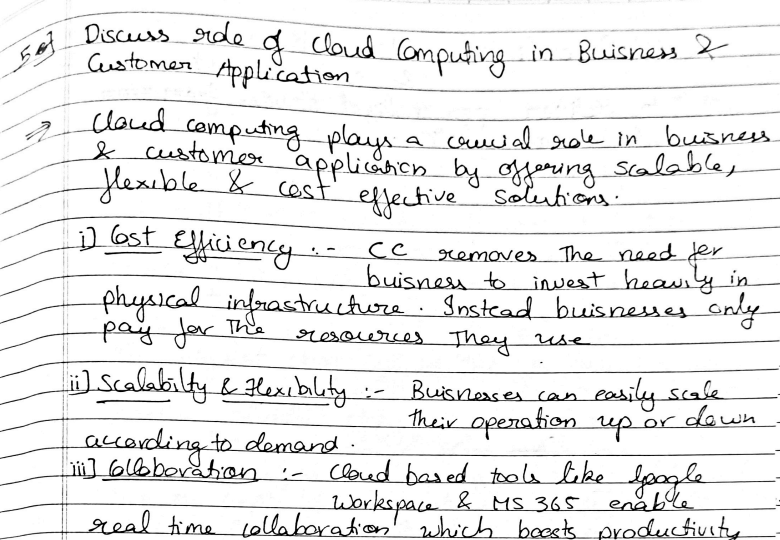 5Q] Discuss role of Cloud Computing in Buisness &
Customer Application
=> Cloud computing plays a crucial role in buisness
& customer application by offering scalable,
flexible & cost effective solutions.
i] Cost Efficiency :- CC removes The need for
buisness to invest heavily in
physical infrastructure. Instead buisnesses only
pay for The resources They use
ii] Scalabilty & Flexibility :- Buisnesses can easily scale
their operation up or down
according to demand.
iii] Collaboration :- Cloud based tools like Google
Workspace & MS 365 enable
real time collaboration which boosts productivity